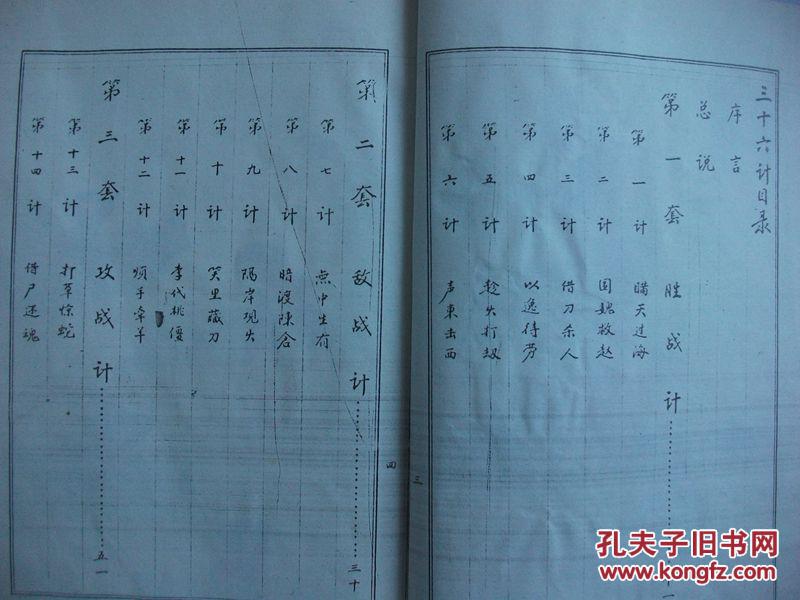 三十六计目录
序言
总说
第一套 胜战计
第一计 瞒天过海
第二计 围魏救赵
第三计 借刀杀人
第四计 以逸待劳
第五计 趁火打劫
第六计 声东击西
三
第二套 敌战计 三十
第七计 無中生有
第八计 暗渡陳仓
第九计 隔岸观火
第十计 笑里藏刀
第十一计 李代桃僵
第十二计 顺手牵羊
第三套 攻战计 五一
第十三计 打草惊蛇
第十四计 借尸还魂
四
孔夫子旧书网
www.kongfz.com